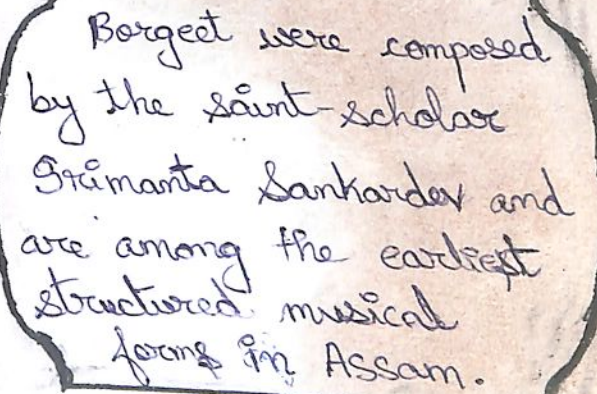 Borgeet were composed
by the saint-scholar
Srimanta Sankardev and
are among the earliest
structured musical
forms in Assam.